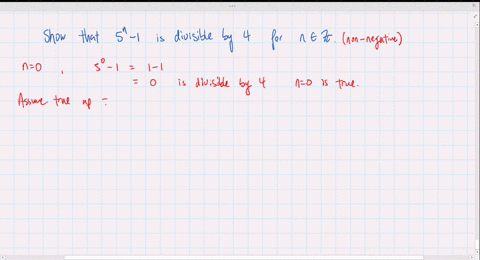 Show that 5ⁿ-1 is divisible by 4 for n ∈ ℤ. (non-negative)
n=0 , 5⁰-1 = 1-1
= 0 is divisible by 4 n=0 is true.
Assume true up =